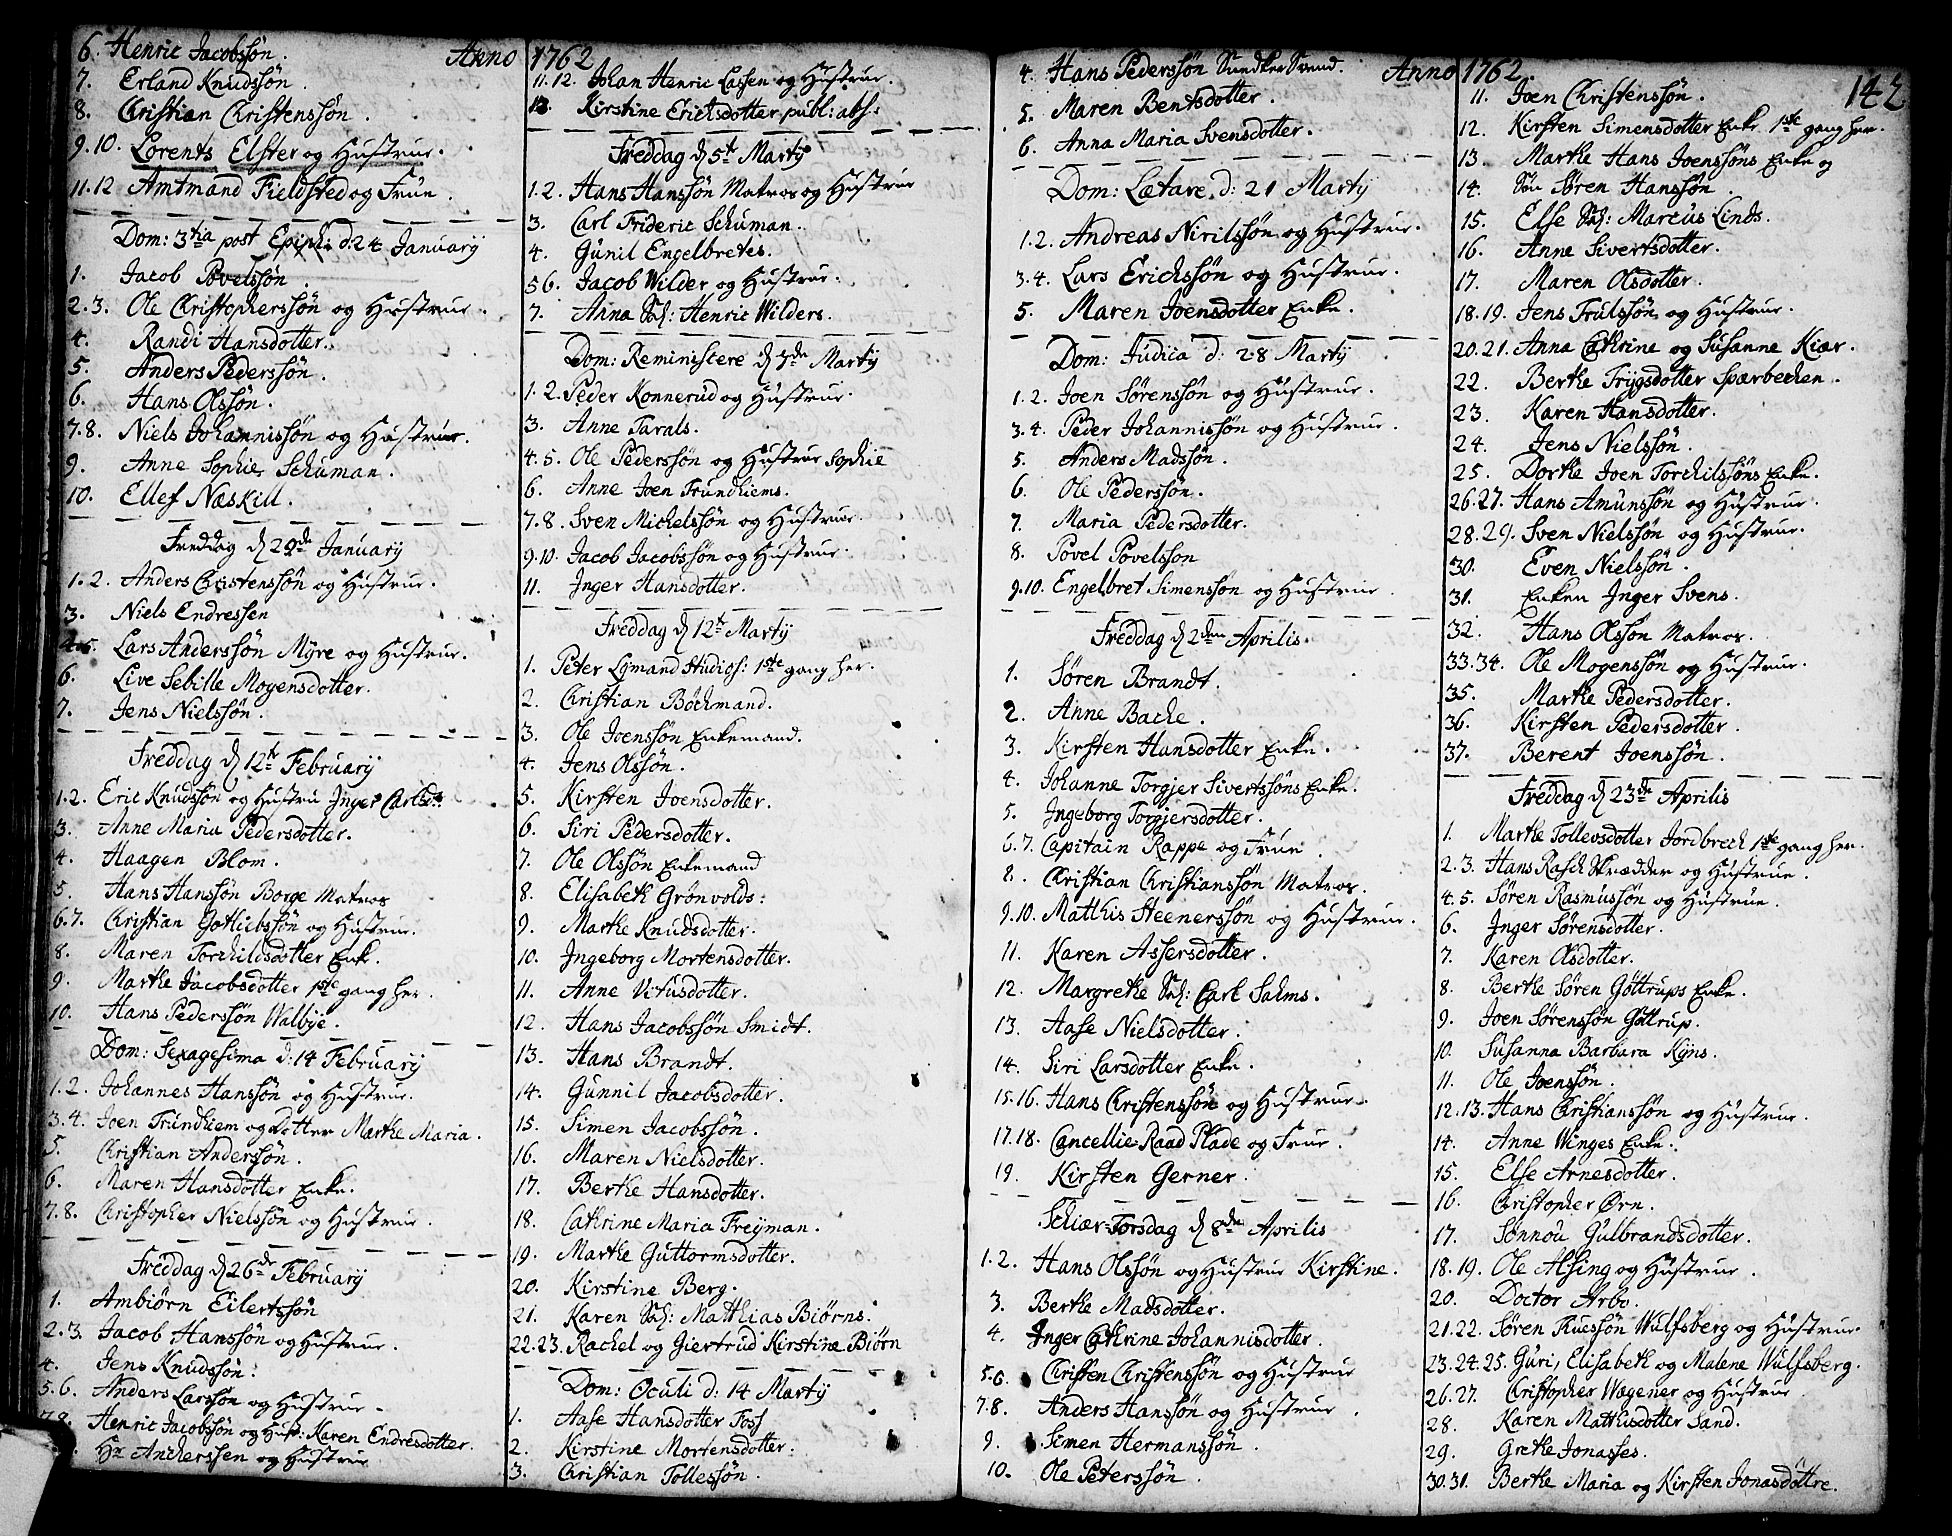 Anno 1762
6. Henric Jacobssøn.
7. Erland Knudssøn.
8. Christian Christenssøn.
9.10. Lorents Elster og Hustrue.
11.12 Amtmand Fieldsted og Frue.
Dom: 3tia post Epiph: d: 24 January
1. Jacob Povelssøn
2.3. Ole Christopherssøn og Hustrue.
4. Randi Hansdotter.
5. Anders Pederssøn.
6. Hans Olssøn.
7.8. Niels Johannissøn og Hustrue.
9. Anne Sophie Schuman.
10. Ellef Næskill.
Freddag d 29de January
1.2. Anders Christenssøn og Hustrue.
3. Niels Endressen
4.5. Lars Anderssøn Myre og Hustrue.
6. Live Sebille Mogensdotter.
7. Jens Nielssøn.
Freddag d 12te February
1.2. Eric Knudssøn og Hustru Inger Carlsd:
3. Anne Maria Pedersdotter.
4. Haagen Blom.
5. Hans Hanssøn Borge Matros
6.7. Christian Gotliebssøn og Hustrue.
8. Maren Torchildsdotter Enk.
9. Marthe Jacobsdotter 1ste gang her.
10. Hans Pederssøn Walbye.
Dom: Sexagesima d: 14 February
1.2. Johannes Hanssøn og Hustrue.
3.4. Joen Trundhiem og Dotter Marthe Maria.
5. Christian Anderssøn.
6. Maren Hansdotter Enke.
7.8. Christopher Nielssøn og Hustrue.
Freddag d 26de February
1. Ambiørn Eilertssøn
2.3. Jacob Hanssøn og Hustrue.
4. Jens Knudssøn.
5.6. Anders Larssøn og Hustrue.
7.8. Henric Jacobssøn og Hust: Karen Endresdotter.
Hr Ancherssen og Hustrue
11.12. Johan Henric Lassen og Hustrue.
13 Kirstine Erichsdotter publ: abs:
Freddag d 5te Marty
1.2. Hans Hanssøn Matros og Hustrue
3. Carl Frideric Schuman.
4. Gunil Engelbretes.
5 6. Jacob Wilder og Hustrue.
7. Anna Sch: Henric Wilders.
Dom: Reminiscere d 7de Marty
1.2. Peder Konnerud og Hustrue.
3. Anne Tarals.
4.5. Ole Pederssøn og Hustrue Sophie
6. Anne Joen Trundhiems.
7.8. Sven Michelssøn og Hustrue.
9.10. Jacob Jacobssøn og Hustrue.
11. Inger Hansdotter.
Freddag d 12te Marty
1. Peter Lymand Studios: 1ste gang her.
2. Christian Böchmand.
3. Ole Joenssøn Enkemand.
4. Jens Olssøn.
5. Kirsten Joensdotter.
6. Siri Pedersdotter.
7. Ole Olssøn Enkemand
8. Elisabeth Grönvolds:
9. Marthe Knudsdotter.
10. Ingeborg Mortensdotter.
11. Anne Vitusdotter.
12. Hans Jacobssøn Smidt.
13. Hans Brandt.
14. Gunnil Jacobsdotter.
15. Simen Jacobssøn.
16. Maren Nielsdotter.
17. Berthe Hansdotter.
18. Cathrine Maria Freyman.
19. Marthe Guttormsdotter.
20. Kirstine Berg.
21. Karen Sch: Matthias Biørns.
22.23. Rachel og Giertrud Kirstine Biørn
Dom: Oculi d: 14 Marty
1. Aase Hansdotter Foss
2. Kirstine Mortensdotter.
3. Christian Tollessøn.
Anno 1762
142
4. Hans Pederssøn Sundker Svend.
5. Maren Bentsdotter.
6. Anna Maria Svensdotter.
Dom: Lætare d: 21 Marty
1.2. Andreas Nirilssøn og Hustrue.
3.4. Lars Erichssøn og Hustrue.
5. Maren Joensdotter Enke.
Dom: Judica d: 28 Marty
1.2. Joen Sørenssøn og Hustrue.
3.4. Peder Johannissøn og Hustrue.
5. Anders Madssøn.
6. Ole Pederssøn.
7. Maria Pedersdotter.
8. Povel Povelssøn
9.10. Engelbret Simenssøn og Hustrue.
Freddag d 2den Aprilis.
1. Søren Brandt.
2. Anne Bache.
3. Kirsten Hansdotter Enke.
4. Johanne Torgjer Sivertssøns Enke.
5. Ingeborg Torgjersdotter.
6.7. Capitain Rappe og Frue.
8. Christian Christianssøn Matros.
9.10. Mathis Steenerssøn og Hustrue.
11. Karen Assersdotter.
12. Margrethe Sch: Carl Salms.
13. Aase Nielsdotter.
14. Siri Larsdotter Enke.
15.16. Hans Christenssøn og Hustrue.
17.18. Cancellie Raad Plade og Frue.
19. Kirsten Gerner.
Schiær-Torsdag d 8de Aprilis
1.2. Hans Olssøn og Hustrue Kirstine.
3. Berthe Madsdotter.
4. Inger Cathrine Johannisdotter.
5.6. Christen Christenssøn og Hustrue
7.8. Anders Hanssøn og Hustrue.
9. Simen Hermanssøn.
10. Ole Peterssøn.
11. Joen Christenssøn.
12. Kirsten Simensdotter Enke 1ste gang her.
13. Marthe Hans Joenssøns Enke og
14. Søn Søren Hanssøn.
15. Else Sch: Marcus Linds.
16. Anne Sivertsdotter.
17. Maren Olsdotter.
18.19. Jens Trulssøn og Hustrue.
20.21. Anna Cathrine og Susanne Kiær.
22. Berthe Trygsdotter Spærbechen.
23. Karen Hansdotter.
24. Jens Nielssøn.
25. Dorthe Joen Torchilssøns Enke.
26.27. Hans Amunssøn og Hustrue.
28.29. Sven Nielssøn og Hustrue.
30. Even Nielssøn.
31. Enken Inger Svens.
32. Hans Olssøn Matros.
33.34. Ole Mogenssøn og Hustrue.
35. Marthe Pedersdotter.
36. Kirsten Pedersdotter.
37. Berent Joenssøn.
Freddag d 23de Aprilis
1. Marthe Tollevsdotter Jordbrech 1ste gang her.
2.3. Hans Rasch Skrædder og Hustrue.
4.5. Søren Rasmussøn og Hustrue.
6. Inger Sørensdotter.
7. Karen Olsdotter.
8. Berthe Søren Gøttrups Enke.
9. Joen Sørenssøn Gøttrup.
10. Susanna Barbara Kyns.
11. Ole Joenssøn.
12.13. Hans Christianssøn og Hustrue.
14. Anne Winges Enke.
15. Else Arnesdotter.
16. Christopher Ørn.
17. Sønnou Gulbrandsdotter.
18.19. Ole Alsing og Hustrue.
20. Doctor Arbo.
21.22. Søren Truessøn Wulfsberg og Hustrue.
23.24.25. Guri, Elisabeth og Malene Wulfsberg.
26.27. Christopher Wagener og Hustrue
28. Karen Matthisdotter Sand.
29. Grethe Jonasses.
30.31. Berthe Maria og Kirsten Jonasdøttre.